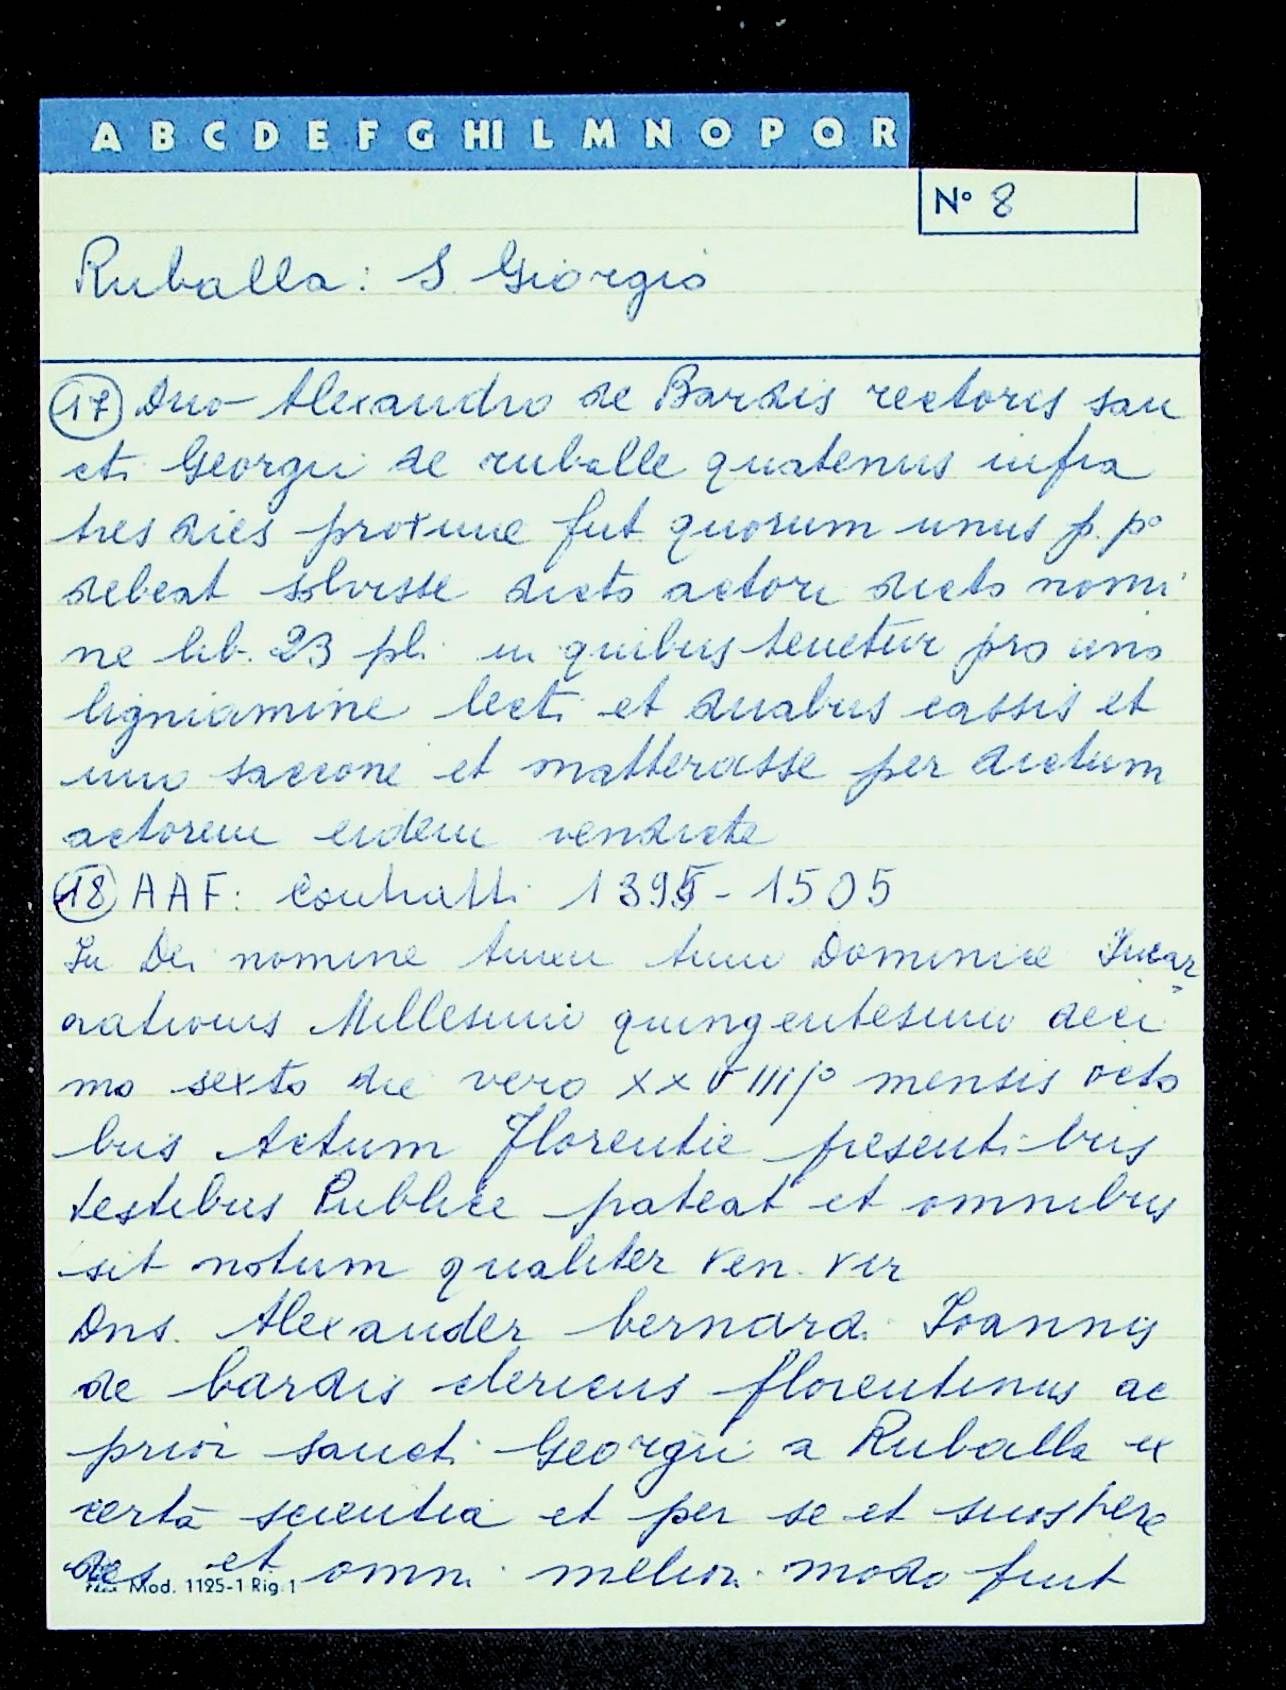 A B C D E F G HI L M N O P Q R
N° 8
Ruballa: S. Giorgio
17 Dno Alexandro de Bardis rectoris san
cti Georgii de ruballe quatenus infra
tres dies proxime fut. quorum unus p. p°
debeat solvisse dicto actori dicto nomi
ne lib. 23 pli in quibus tenetur pro uno
ligniamine lecti et duabus cassis et
uno saccone et matterasse per dictum
actorem eidem vendicte
18 AAF: Contratti 1395-1505
In Dei nomine Amen Anni Dominice Incar
nationis Millesimi quingentesimo deci
mo sexto die vero xxVIIIJ° mensis octo
bris Actum Florentie presentibus
testibus Publice pateat et omnibus
sit notum qualiter Ven. Vir
Dns. Alexander bernardi Ioannis
de bardis clericus florentinus ac
prior sancti Georgii a Ruballa ex
certa scientia et per se et suos here
des et omni meliori modo fuit
Mod. 1125-1 Rig. 1